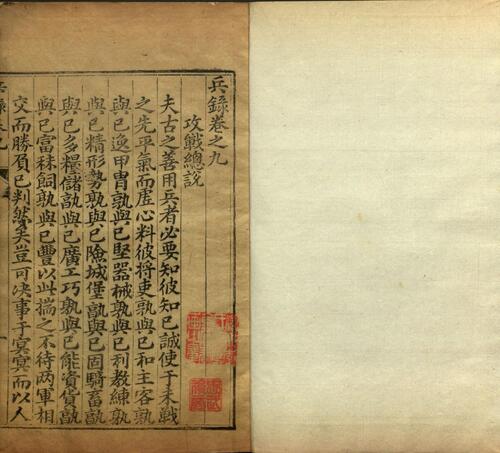 兵錄卷之九
攻戰總説
夫古之善用兵者必要知彼知已誠使于未戰
之先平氣而虛心料彼將吏孰與已和主客孰
與已逸甲冑孰與已堅器械孰與已利教練孰
與已精形勢孰與已險城堡孰與已固騎畜孰
與已多糧儲孰與已廣工巧孰與已能資貨孰
與已富秣飼孰與已豐以此揣之不待两軍相
交而勝負已判然矣豈可决事于冥冥而以人
兵錄卷九